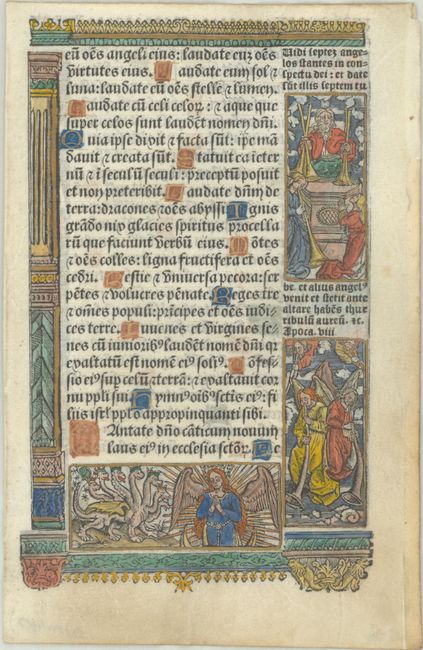 eū oēs angeli eius: laudate euꝫ oēs
virtutes eius. Laudate eum sol ⁊
luna: laudate eū oēs stelle ⁊ lumen.
Laudate eū celi celoꝝ: ⁊ aque que
super celos sunt laudēt nomen dn̄i.
Quia ipse dixit ⁊ facta sūt: ipe mā
dauit ⁊ creata sūt. Statuit ea ī eter
nū ⁊ ī seculū seculi: preceptū posuit
et non preteribit. Laudate dn̄m de
terra: dracones ⁊ oēs abyssi. Ignis
grādo nix glacies spiritus procella
rū que faciunt verbū eius. Mōtes
⁊ oēs colles: ligna fructifera et oēs
cedri. Bestie ⁊ vniuersa pecora: ser
pētes ⁊ volucres pēnate. Reges tre
⁊ om̄es populi: prīcipes et oēs iudi
ces terre. Iuuenes et virgines se
nes cū iunioribꝰ laudēt nomē dn̄i qꝛ
exaltatū est nomen eiꝰ solīꝰ. Cōfes
sio eiꝰ sup celū ⁊ terrā: ⁊ exaltauit cor
nu ppli sui. Hymnꝰ oībꝰ sctīs eiꝰ: fi
liis isrl pplo appropinquanti sibi.
Cantate dn̄o cāticum nouum
laus eiꝰ in ecclesia sctōꝝ. Le
Vidi septeꝫ ange
los stantes in con
spectu dei: et date
sūt illis septem tu
be. et alius angelꝰ
venit et stetit ante
altare habēs thur
ribulū aureū. ⁊c.
Apoca. viii